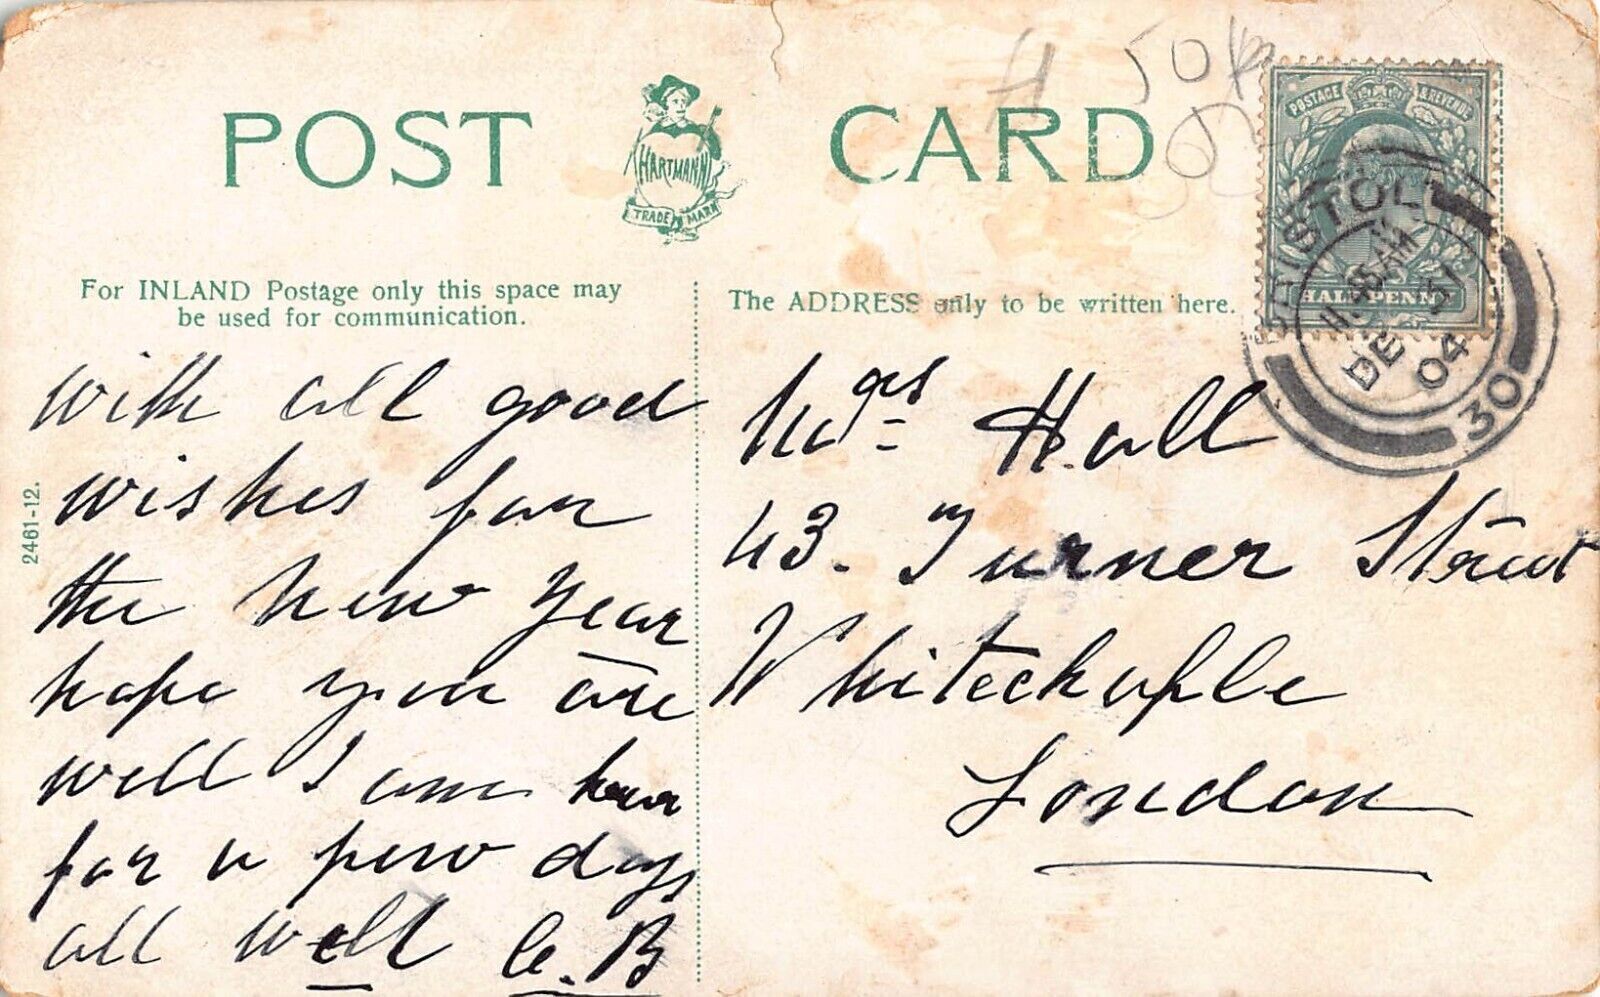 POST CARD
HARTMANN
TRADE MARK
H 50
POSTAGE & REVENUE
HALFPENNY
BRISTOL
11.45 AM
DE 31
04
30
For INLAND Postage only this space may
be used for communication.
The ADDRESS only to be written here.
2461-12.
with all good
wishes for
the New Year
hope you are
well I am here
for a few days
all well C.B
Mrs Hall
43. Turner Street
Whitechaple
London